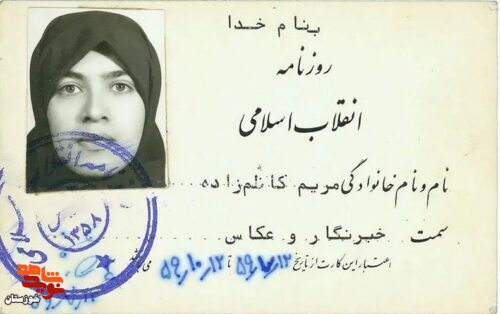 بنام خدا
روزنامه
انقلاب اسلامی
نام و نام خانوادگی مریم کاظم‌زاده
سمت خبرنگار و عکاس
اعتبار این کارت از تاریخ ۵۹/۷/۱۲ تا ۵۹/۱۰/۱۲ می‌باشد
۱۳۵۸
نوید شاهد
خوزستان